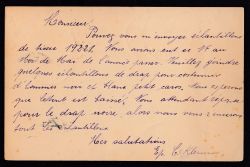 Monsieur.
Pouvez vous m'envoyer échantillons
de tissu 19224. Vous avons eut es 14 au
Mois de Mai de l'année passée. Veuillez joindre
quelques échantillons de drap pour costumes
d'hommes noir et blanc petit caro. Nous espérons
que l'échant est laissé. Vous attendant réponse
pour le drap noire alors nous vous renverrons
tout les échantillons.
Mes salutations